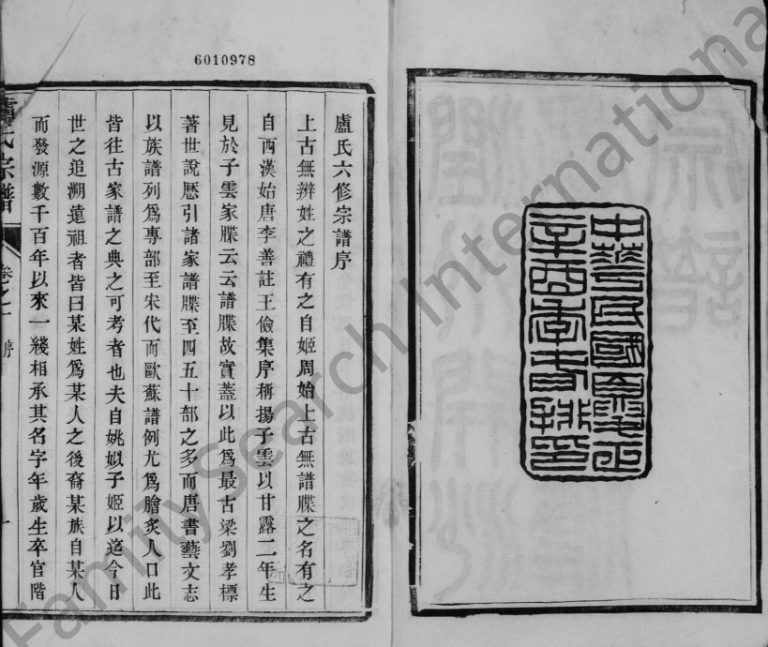 中華民國夏正
辛酉年春排印
6010978
盧氏六修宗譜序
上古無辯姓之禮有之自姬周始上古無譜牒之名有之
自西漢始唐李善註王儉集序稱揚子雲以甘露二年生
見於子雲家牒云云譜牒故實蓋以此爲最古梁劉孝標
著世說歷引諸家譜牒至四五十部之多而唐書藝文志
以族譜列爲專部至宋代而歐蘇譜例尤爲膾炙人口此
皆往古家譜之典之可考者也夫自姚姒子姬以迄今日
世之追溯遠祖者皆曰某姓爲某人之後裔某族自某人
而發源數千百年以來一綫相承其名字年歲生卒官階
盧氏宗譜
卷之一 序
一
FamilySearch International